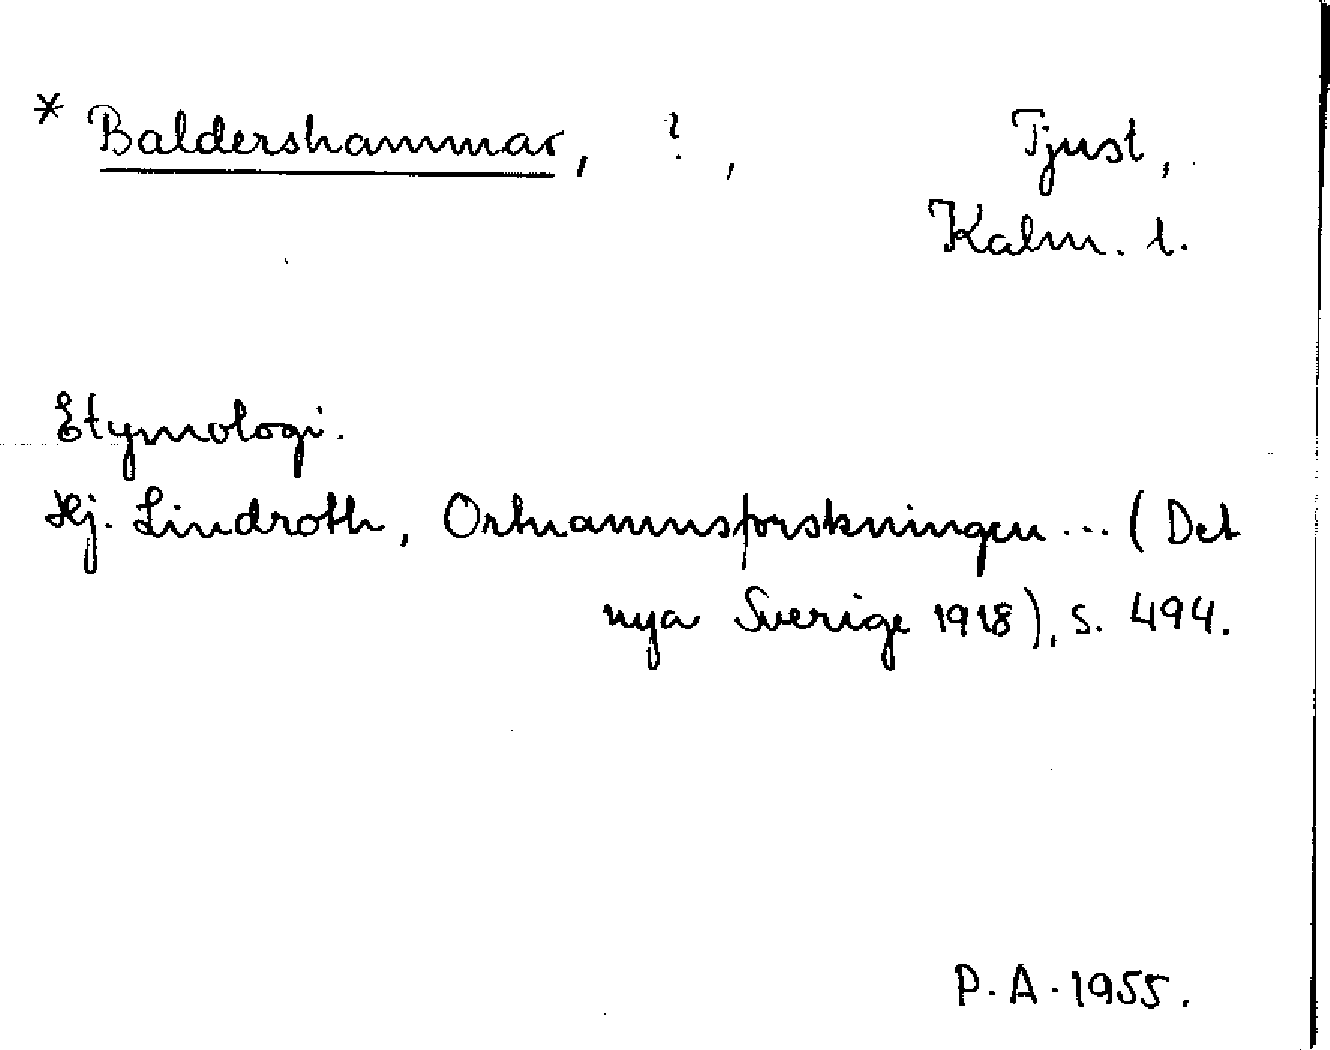 * Baldershammar, ? , Tjust,
Kalm. l.
Etymologi.
Hj. Lindroth, Ortnamnsforskningen ... (Det
nya Sverige 1918), s. 494.
P. A. 1955.